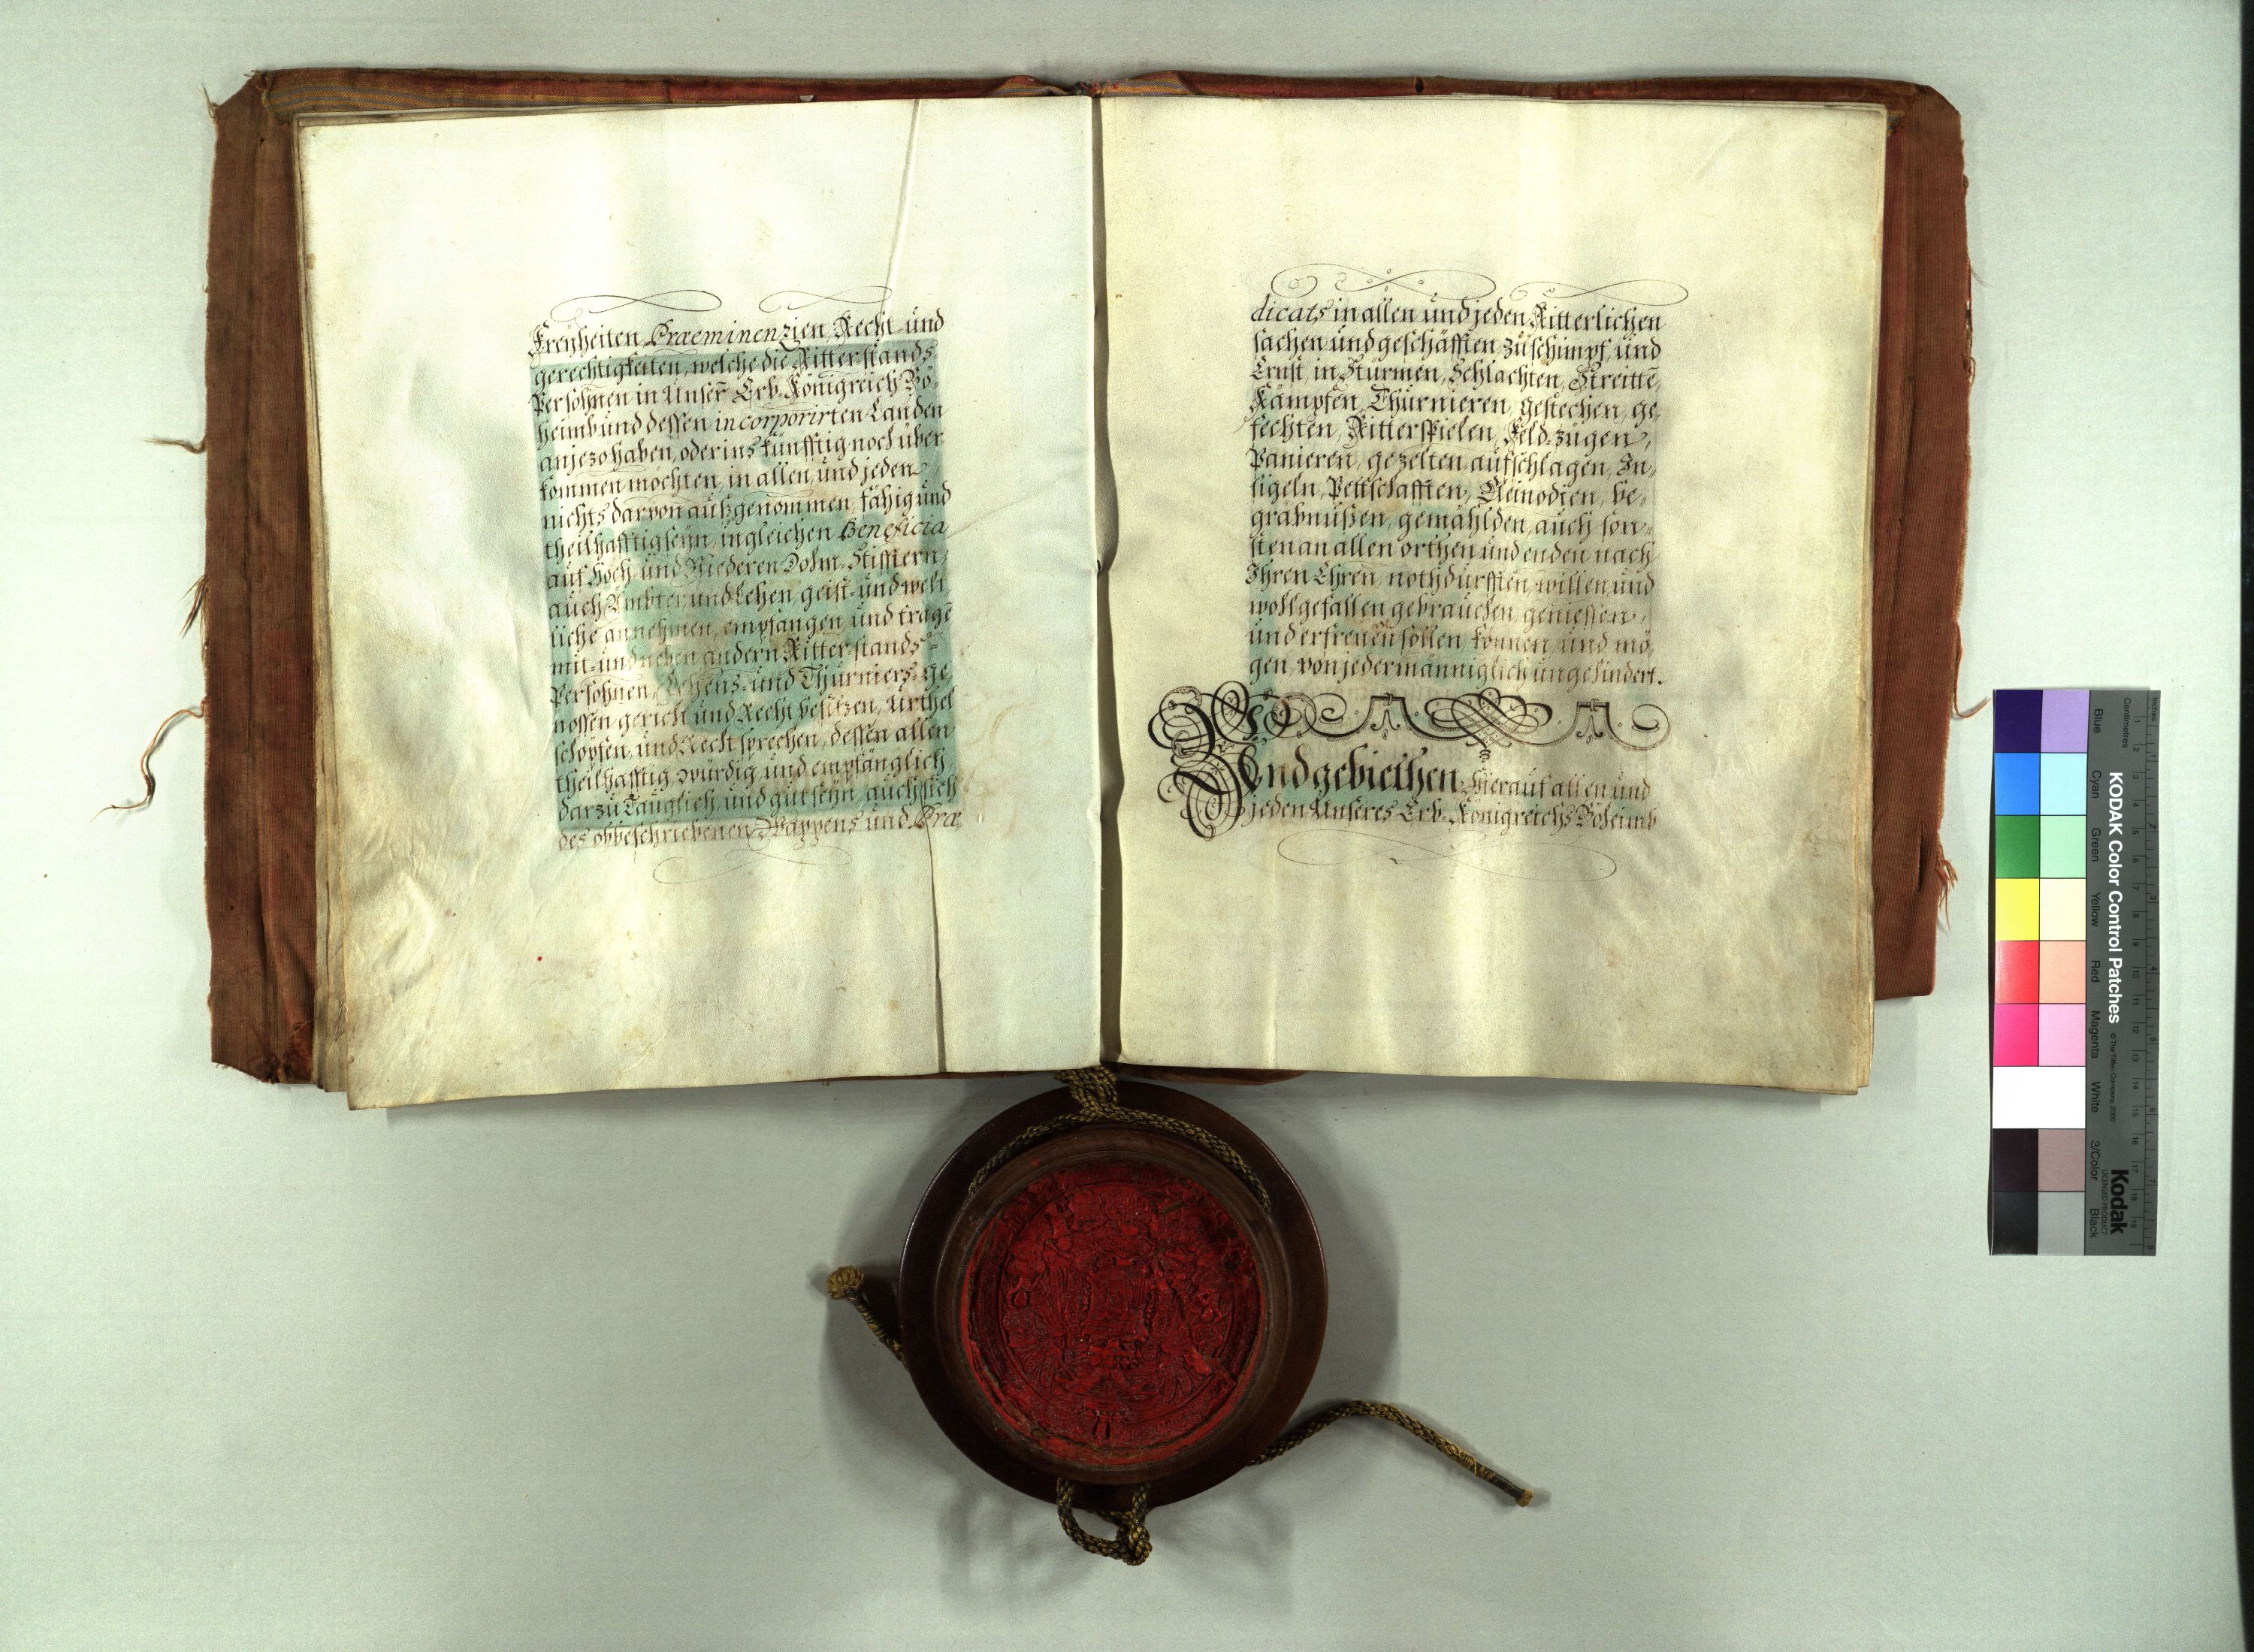 Freÿheiten, Præeminenzien, Recht und
gerechtigkeiten, welche die Ritterstands-
Persohnen in Unserm̄ Erb-Königreich Bö-
heimb und dessen incorporirten Landen
anjezo haben, oder ins künfftig noch über
kommen möchten, in allen, und jeden,
nichts darvon außgenommen, fähig und
theilhafftig seÿn, ingleichen Beneficia
auf Hoch- und Niederen Dohm-Stifftern,
auch Ämbter, und Lehen, geist- und welt
liche annehmen, empfangen und tragē
mit- und neben andern Ritter-stands-
Persohnen, Lehens- und Thurniers-ge
nossen gericht und Recht besitzen, Urthel
schöpfen, und Recht sprechen, dessen allen
theilhafftig, würdig, und empfänglich
darzu Tauglich, und gut seÿn, auch sich
des obbeschriebenen Wappens und Præ
dicats in allen und jeden Ritterlichen
sachen und geschäfften, zu schimpf, und
Ernst, in Stürmen, Schlachten, Streittē,
Kämpfen, Thurnieren, gestechen, ge-
fechten, Ritterspielen, Feld-zügen,
Panieren, gezelten aufschlagen, In-
sigeln, Pettschafften, Kleinodien, be-
grabnüßen, gemählden, auch son-
sten an allen orthen und enden nach
Ihren Ehren, nothdurfften, willen und
wollgefallen gebrauchen, geniessen,
und erfreuen sollen, können, und mö-
gen, von jedermänniglich ungehindert.
Und gebiethen hierauf allen und
jeden Unseres Erb-Königreichs Böheimb
KODAK Color Control Patches
© The Tiffen Company, 2000
Kodak
LICENSED PRODUCT
Inches
Centimetres
Blue
Cyan
Green
Yellow
Red
Magenta
White
3/Color
Black